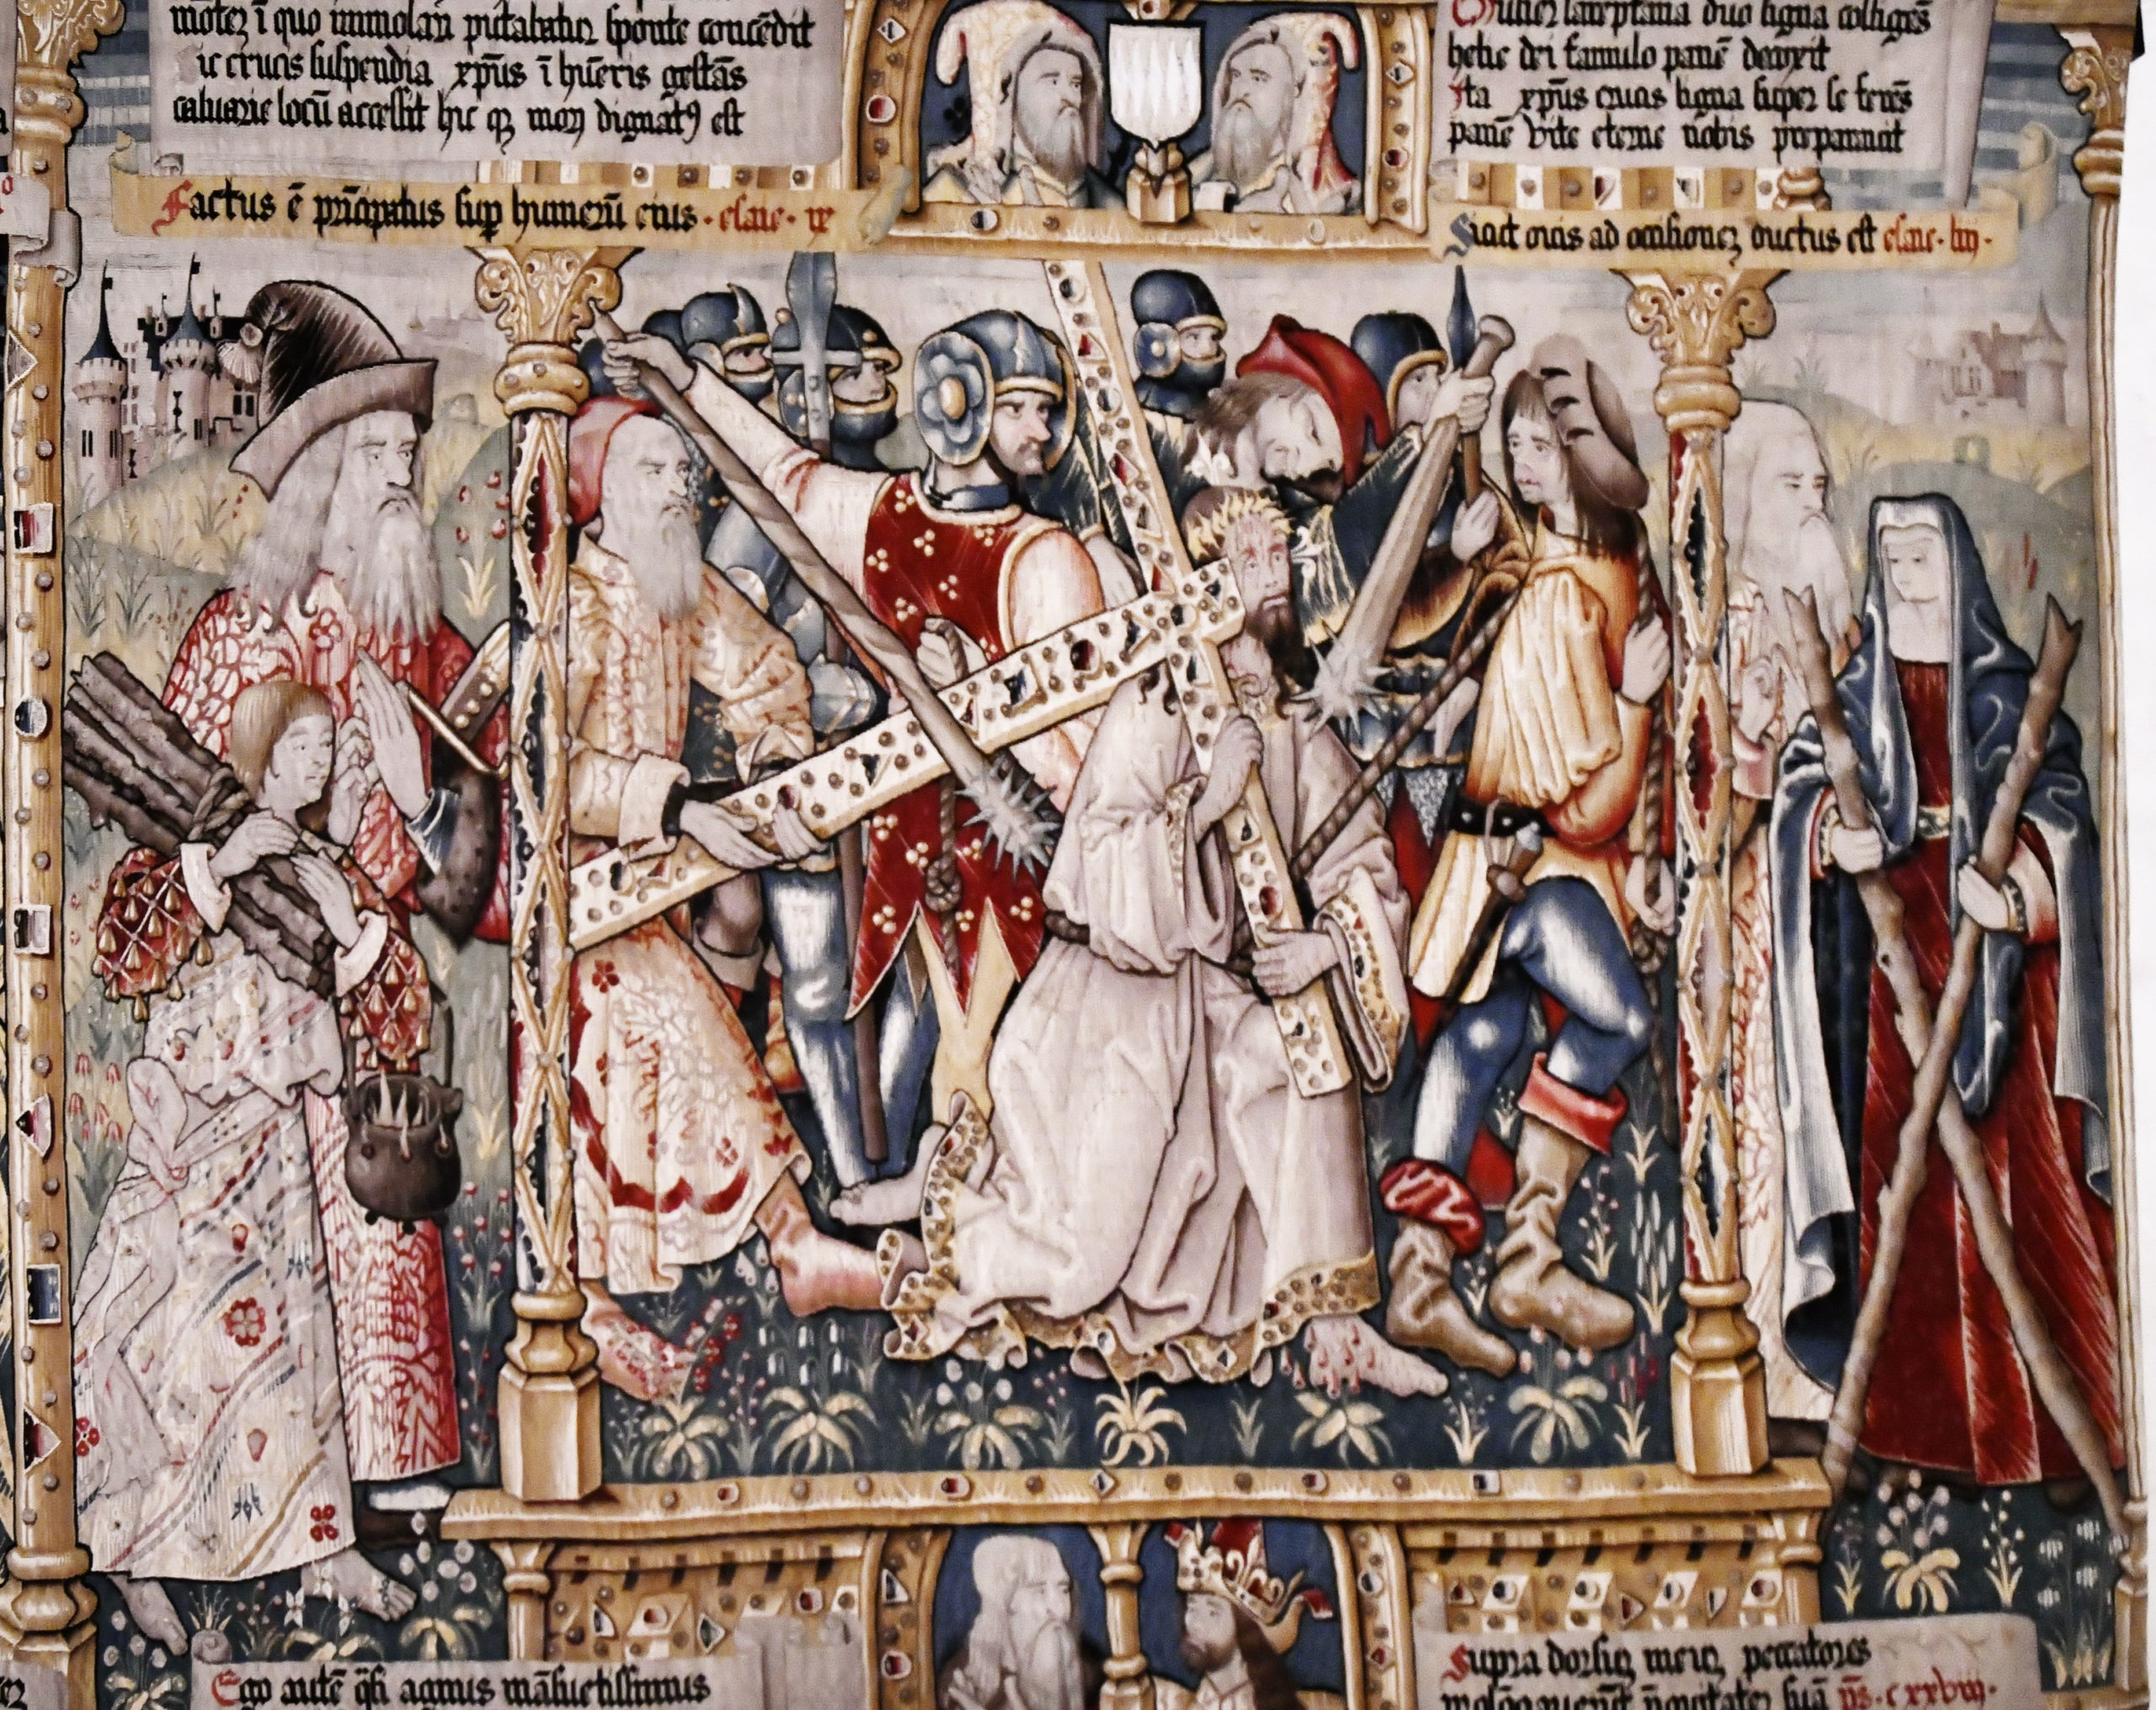 mōtez ī quo immolari putabatur sponte concēdit
ic crucis suspendia xp̄us ī hūeris gestās
caluarie locū accessit hic qz mori dignatꝯ est
Factus ē prīcipatus sup humerū eius · esaie · ix
duo ligna colligēs
helie dei famulo panē
Ita xp̄us crucis ligna super se ferēs
panē vite eterne nobis preparauit
Sicut ouis ad occisionez ductus est esaie · liij ·
Ego autē q̄si agnus māsuetissimus
Supra dorsuz meuz peccatores
suā ps̄ · cxxviij ·